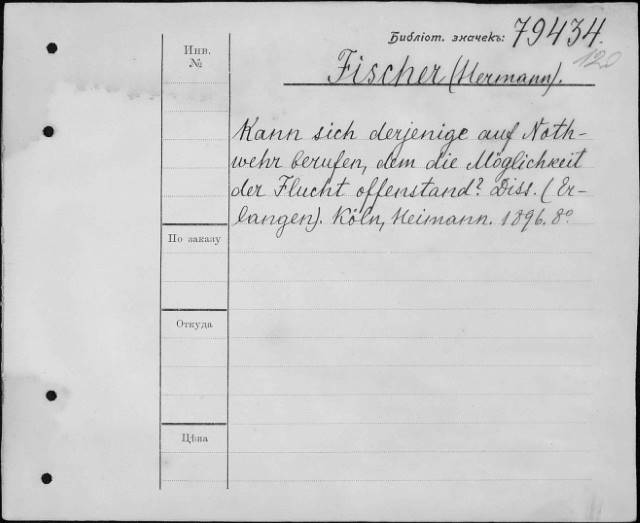 Библіот. значекъ: 79434.
120
Инв.
№
Fischer (Hermann).
Kann sich derjenige auf Noth-
wehr berufen, dem die Möglichkeit
der Flucht offenstand? Diss. (Er-
langen). Köln, Heimann. 1896. 8º
По заказу
Откуда
Цѣна